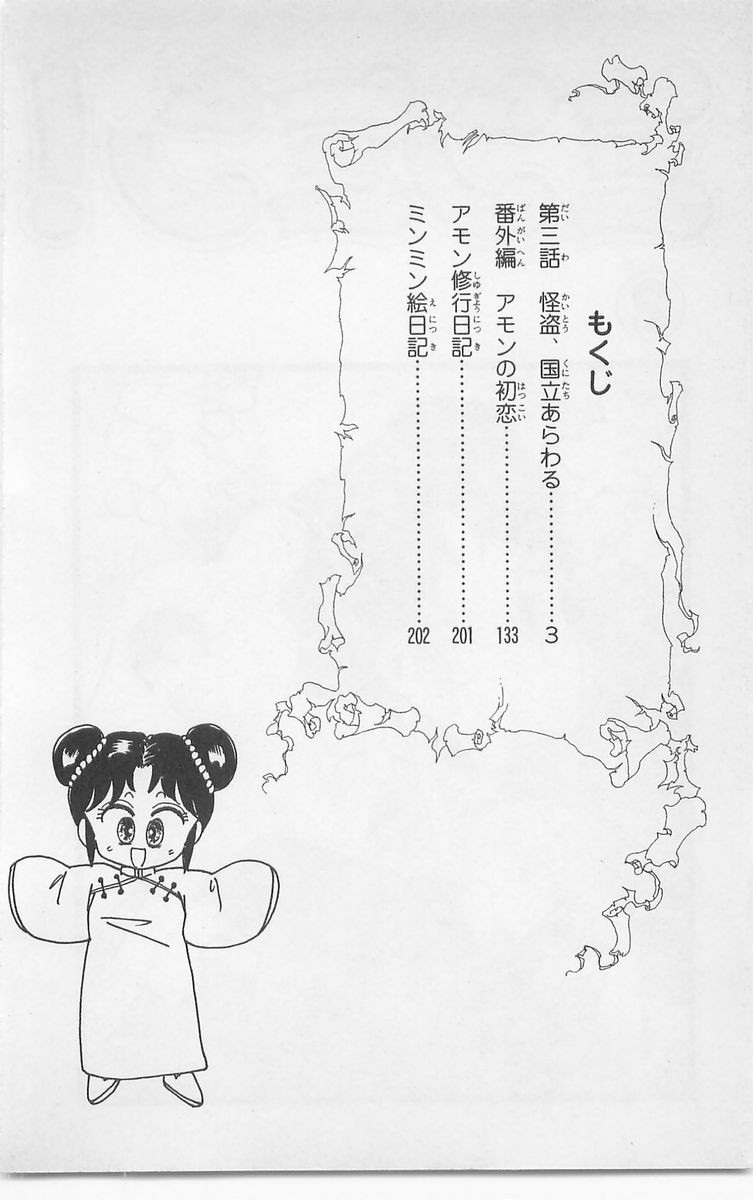 もくじ
第三話 怪盗、国立あらわる…………3
番外編 アモンの初恋…………133
アモン修行日記…………201
ミンミン絵日記…………202